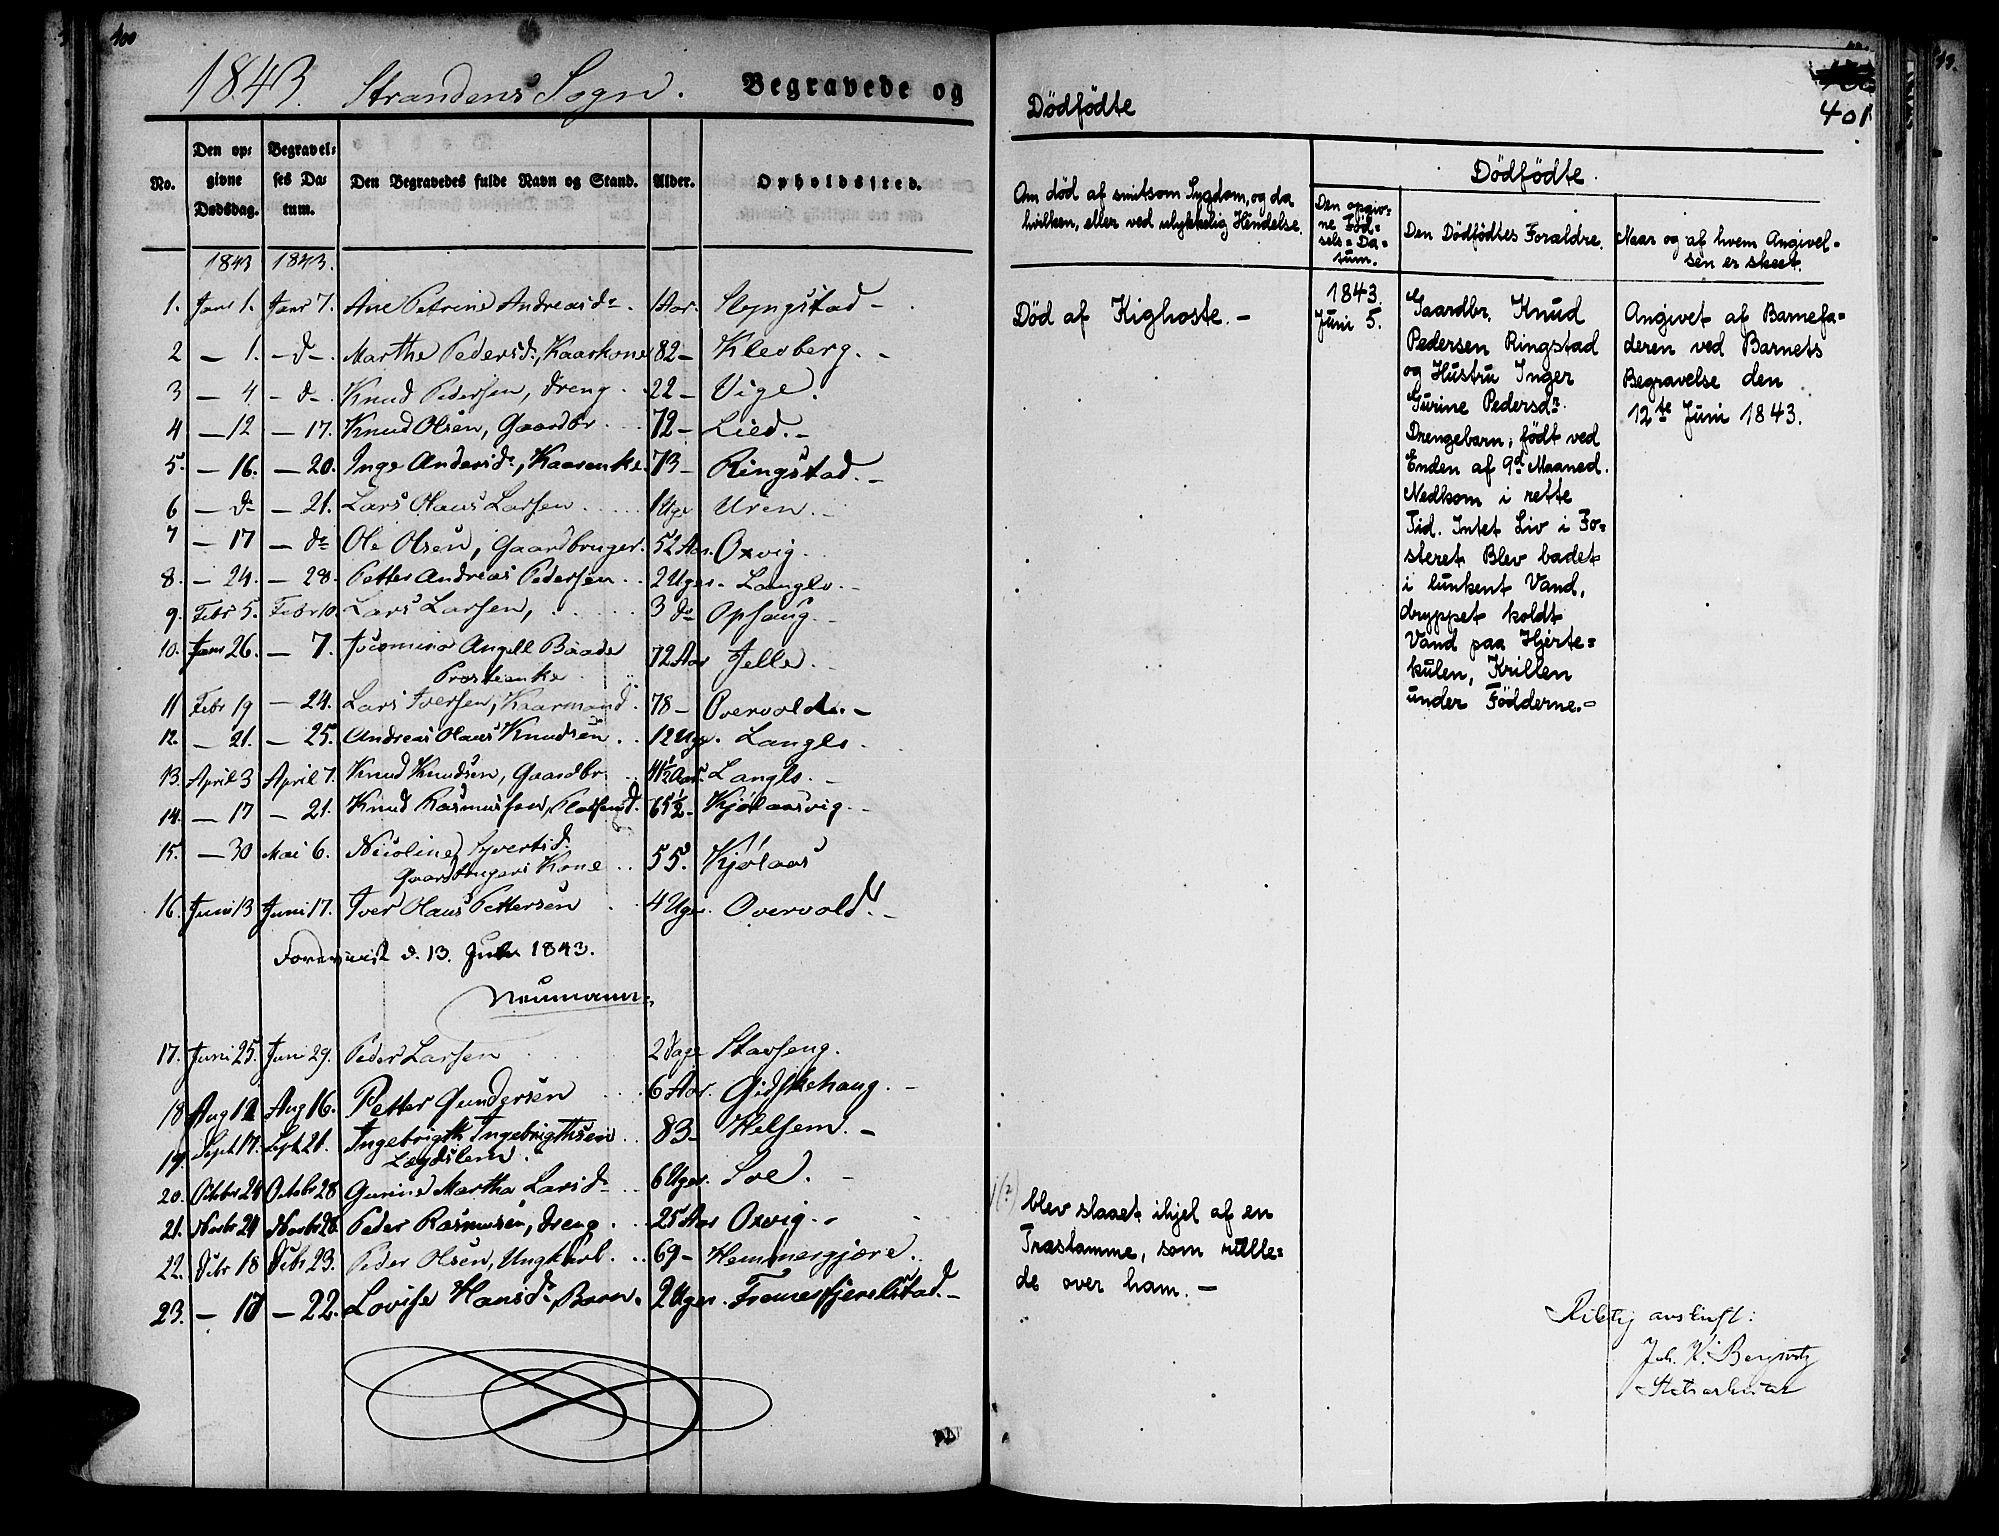 400
1843. Strandens Sogn. Begravede og
No. Den opgivne Dødsdag. Begravelses Datum. Den Begravedes fulde Navn og Stand. Alder. Opholdssted.
1843 1843.
1. Janr 1. Janr 7. Ane Petrine Andreasdr 1 Aar. Slyngstad –
2 – 1. – do – Marthe Pedersdr, Kaarkone 82 – Klevberg. –
3 – 4 – do – Knud Pedersen, dreng 22 – Vige.
4 – 12 – 17. Knud Olsen, Gaardbr 72 – Lied. –
5. – 16. – 20. Inge Andersdr, Kaarenke 73 – Ringstad. –
6 – do – 21. Lars Olaus Larsen 1 Uge Uren. –
7 – 17 – do Ole Olsen, Gaardbruger. 52 Aar. Oxvig.
8. – 24. – 28. Petter Andreas Pedersen 2 Uger. Langlo. –
9. Febr 5. Febr 10. Lars Larsen, 3 do Ophaug. –
10. Janr 26. – 7. Angell Baade
Provstienke 72 Aar Jelle. –
11 Febr 19 – 24. Lars Iversen, Kaarmand. 78 – Overvold. –
12. – 21. – 25. Andreas Olaus Knudsen 12 Uger. Langlo.
13. April 3 April 7. Knud Knudsen, Gaardbr. 41½ Aar. Langlo. –
14. – 17 – 21. Knud Rasmussen, 65½ – Kjølaasvig. –
15. – 30 Mai 6. Nicoline Syvertsdr
Gaardbrugers Kone 55. Kjølaas
16. Juni 13 Juni 17. Iver Olaus Pettersen 4 Uger. Overvold. –
Forevist d. 13. 1843.
Neumann
17. Juni 25. Juni 29. Peder Larsen 2 dage Stavseng.
18 Aug 12 Aug 16. Petter Gundersen 6 Aar. Gidskehaug. –
19. Sept 17. Sept 21. Ingebrigth Ingebrigthsen
Lægdslem. 83 – Helsem. –
20. Octobr 24 Octobr 28 Gurine Martha Larsdr 6 Uger. Sve. –
21. Novbr 24 Novbr 28. Peder Rasmussen, dreng 25 Aar Oxvig. –
22. Dcbr 18 Dcbr 23. Peder Olsen, Ungkarl. 69 – Hemmergjære.
23. – 17 – 22. Lovise Hansdr, Barn. 2 Uger.
Dødfødte
401
Om død af smitsom Sygdom, og da
hvilken, eller ved ulykkelig Hendelse.
Dødfødte.
Den opgiv=
ne Fød=
sels=Da=
tum.
Den Dødfødtes Forældre.
Naar og af hvem Angivel=
sen er skeet.
Død af Kighoste. –
1843.
Juni 5.
Gaardbr. Knud
Pedersen Ringstad
og Hustru Inger
Gurine Pedersdr.
Drengebarn, født ved
Enden af 9d Maaned.
Nedkom i rette
Tid. Intet Liv i Fo=
steret Blev badet
i lunkent Vand,
dryppet koldt
Vand paa Hjerte=
kulen, Krillen
under Fødderne. –
Angivet af Barnefa=
deren ved Barnets
Begravelse den
12te Juni 1843.
1(?) blev slaaet ihjel af en
Træstamme, som rulle=
de over ham. –
Riktig avskrift:
Joh. K. Bergwitz
Statsarkivar